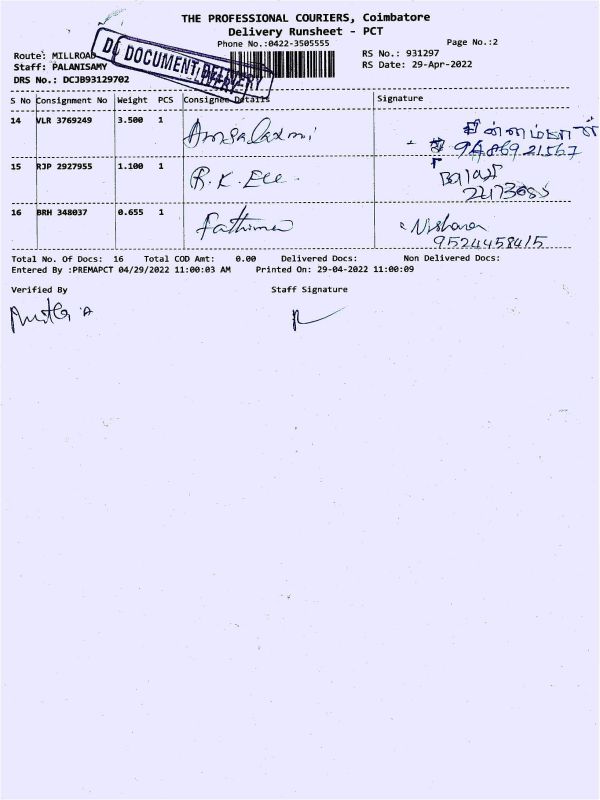 THE PROFESSIONAL COURIERS, Coimbatore
Delivery Runsheet - PCT
Phone No.:0422-3505555 Page No.:2
Route: MILLROAD RS No.: 931297
Staff: PALANISAMY RS Date: 29-Apr-2022
DRS No.: DCJB93129702
DOCUMENT DELIVERY
S No Consignment No Weight PCS Consignee Details Signature
14 VLR 3769249 3.500 1
9486921567
15 RJP 2927955 1.100 1 R.K. Ele
பாலாஜி
16 BRH 348037 0.655 1 Fathima
9524458415
Total No. Of Docs: 16 Total COD Amt: 0.00 Delivered Docs: Non Delivered Docs:
Entered By :PREMAPCT 04/29/2022 11:00:03 AM Printed On: 29-04-2022 11:00:09
Verified By Staff Signature